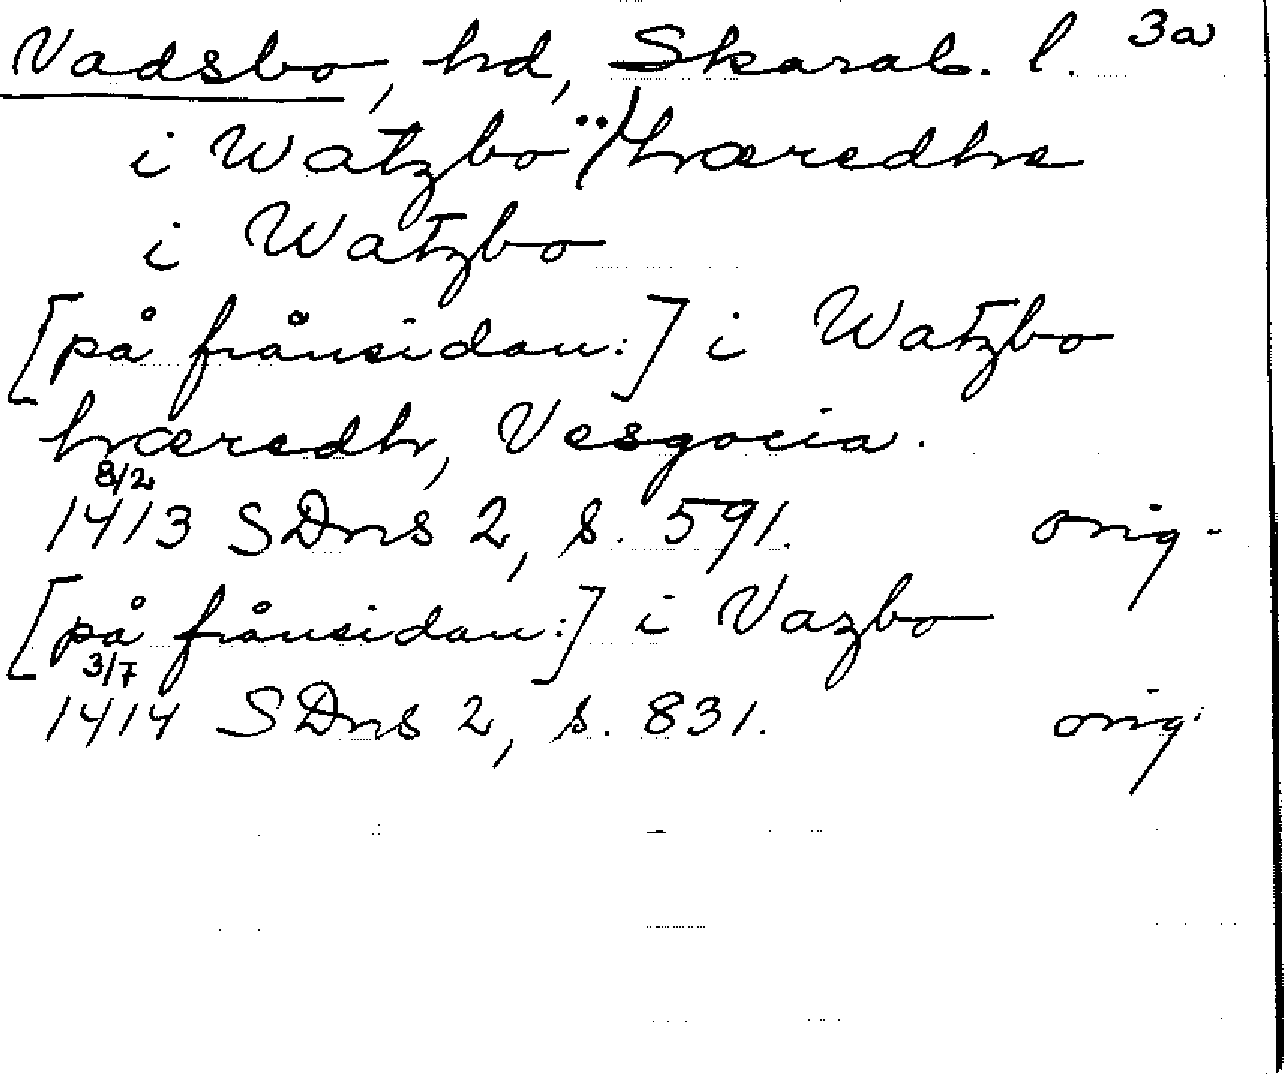 Vadsbo, hd, Skarab. l. 3a
i Watzbo ··/hæredhe
i Watzbo
[på frånsidan:] i Watzbo
hæredh, Vesgocia.
8/2
1413 SDns 2, s. 591. orig.
[på frånsidan:] i Vazbo
3/7
1414 SDns 2, s. 831. orig.